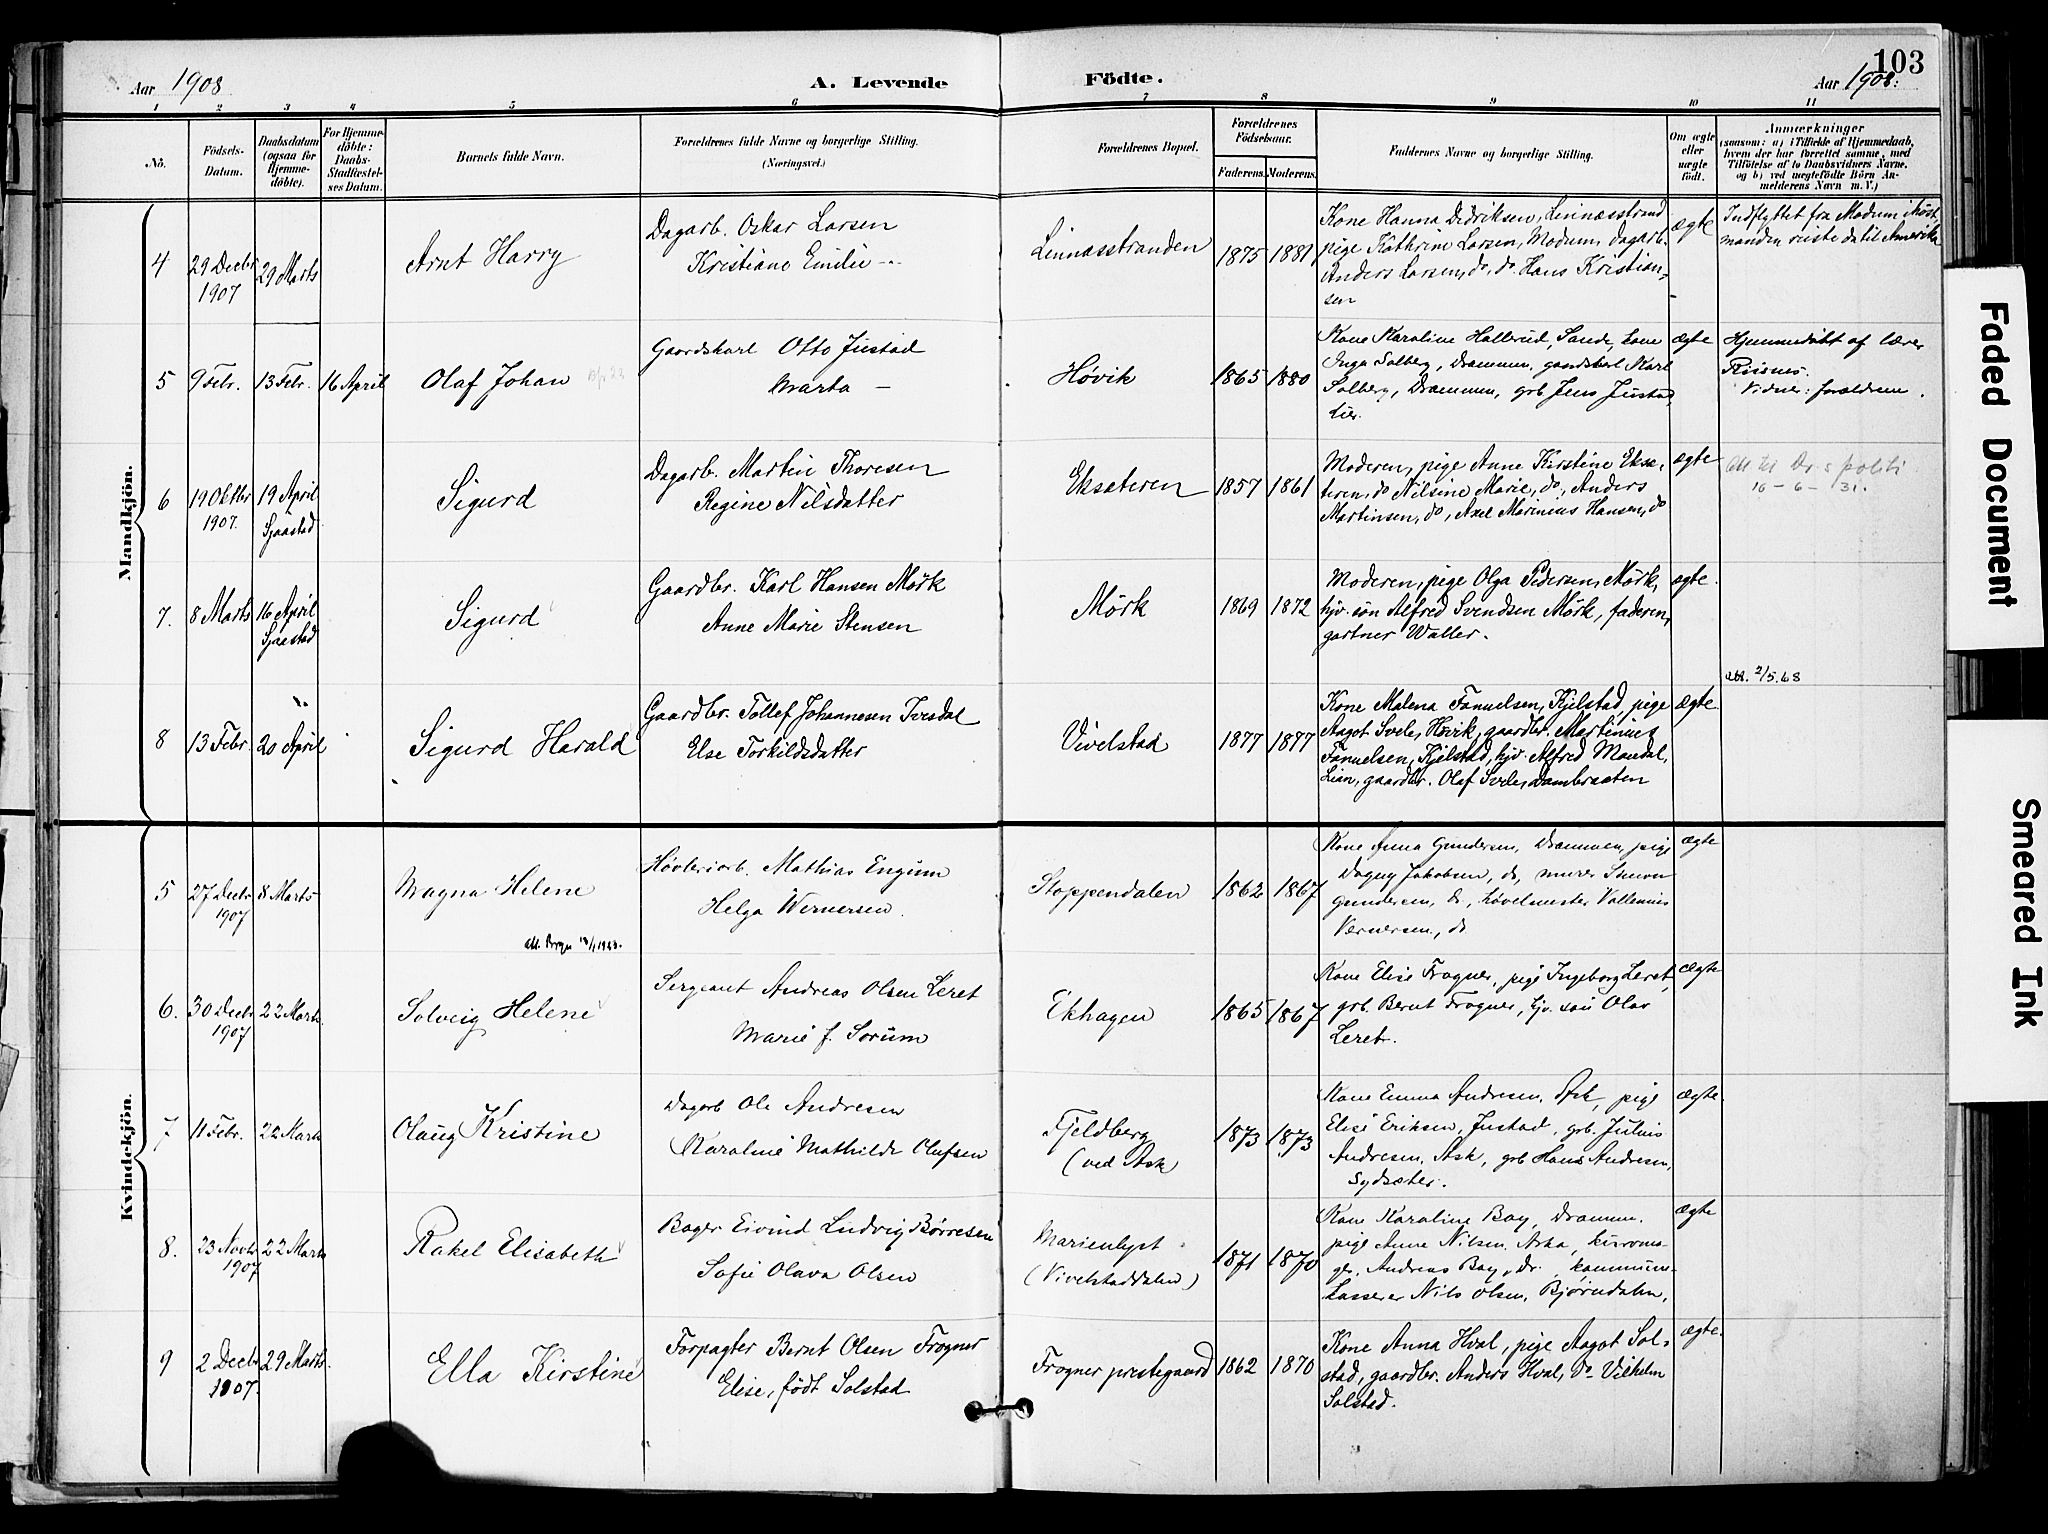 103
Aar 1908
A. Levende
Födte.
Aar 1908.
1 2 3 4 5 6 7 8 9 10 11
No.
Födsels-
Datum.
Daabsdatum
(ogsaa for
Hjemme-
döbte).
For Hjemme-
döbte:
Daabs-
Stadfæstel-
ses Datum.
Barnets fulde Navn.
Forældrenes fulde Navne og borgerlige Stilling.
(Næringsvei.)
Forældrenes Bopæl.
Forældrenes
Födselsaar.
Faderens. Moderens.
Faddernes Navne og borgerlige Stilling.
Om ægte
eller
uægte
födt.
Anmærkninger
(saasom: a) i Tilfælde af Hjemmedaab,
hvem der har forrettet samme, med
Tilföielse af to Daabsvidners Navne.
og b) ved uægtefödte Börn An-
melderens Navn m. V.)
Mandkjön.
4
29 Decbr
1907
29 Marts
Arnt Harry
Dagarb. Oskar Larsen
Kristiane Emilie -
Linnæsstranden
1875
1881
Kone Hanna Didriksen, Linnæsstrand
pige Kathrine Larsen, Modum, dagarb.
Anders Larsen, do, do. Hans Kristian-
sen
ægte
Indflyttet fra Modum i höst,
manden reiste da til Amerika
5
9 Febr.
13 Febr.
16 April
Olaf Johan
Gaardskarl Otto Justad
Marta -
Høvik
1865
1880
Kone Karoline Hallerud, Sande, kone
Inga Solberg, Drammen, gaardskarl Karl
Solberg, Drammen, grb Jens Justad,
Lier.
ægte
Hjemmedøbt af lærer
Risnes.
Vidner: forældrene.
6
19 Oktbr
1907.
19 April
Sjaastad
Sigurd
Dagarb. Martin Thoresen
Regine Nilsdatter
Eksæteren
1857
1861
Moderen, pige Anne Kirstine Eksæ-
teren, do Nilsine Marie, do, Anders
Martinsen, do, Axel Marinius Hansen, do
ægte
Att til Dr.s politi
16 - 6 - 31.
7.
8 Marts
16 April
Sjaastad
Sigurd
Gaardbr. Karl Hansen Mörk
Anne Marie Stensen
Mörk
1869
1872
Moderen, pige Olga Pedersen, Mörk,
hjv. sön Alfred Svendsen Mörk, faderen,
gartner Waller.
ægte.
att. 2/5.68
8
13 Febr.
20 April
Sigurd Harald
Gaardbr. Tollef Johannesen Ivesdal
Else Torkildsdatter
Vivelstad
1877
1877
Kone Malena Fanuelsen, Kjelstad, pige
Aagot Svele, Høvik, gaardbr. Martinius
Fanuelsen, Kjelstad, hjv. Alfred Mandal,
Lian, gaardbr. Olaf Svele, Dambraaten
ægte
Kvindekjön.
5
27 Decbr
1907
8 Marts
Magna Helene
Høvleriarb. Mathias Engum
Helga Wernersen.
Stoppendalen
1862
1867
Kone Anna Gundersen, Drammen, pige
Dagny Jakobsen, do, murer Simon
Gundersen, do, høvelmester
Vernersen, do
ægte
6.
30 Decbr
1907
22 Marts
Solveig Helene
Sergeant Andreas Olsen Leret
Marie f. Sorum
Ekhagen
1865
1867
Kone Elise Frogner, pige Ingeborg Leret,
grb. Bernt Frogner, hjv. søn Olav
Leret.
ægte
7
11 Febr.
22 Marts
Olaug Kristine
Dagarb Ole Andresen
Karoline Mathilde Olufsen
Fjeldberg
(ved Ask
1873
1873
Kone Emma Andresen, Ask, pige
Elise Eriksen, Justad, grb. Julius
Andresen, Ask, grb Hans Andresen,
Sydsæter.
ægte.
8.
23 Novbr
1907
22 Marts
Rakel Elisabeth
Bager Eivind Ludvig Børresen
Sofie Olava Olsen
Marienlyst
(Vivelstaddalen)
1871
1870
Kone Karoline Bay, Dramm.
pige Anne Nilsen, Aska,
Andreas Bay, Dr. kommune-
kasserer Nils Olsen, Bjørndalen,
ægte
9
2 Decbr
1907.
29 Marts.
Ella Kirstine
Forpagter Bernt Olsen Frogner
Elise, födt Solstad
Frogner prestegaard
1862
1870
Kone Anna Hval, pige Aagot Sol-
stad, gaardbr. Anders Hval, do Vilhelm
Solstad.
ægte.
Faded Document
Smeared Ink